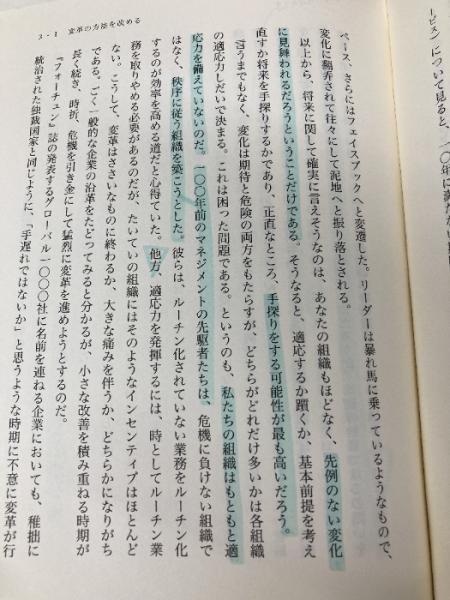 3・1 変革の方法を改める
ービス)について見ると、一〇年に満た
ペース、さらにはフェイスブックへと変遷した。リーダーは暴れ馬に乗っているようなもので、
変化に翻弄されて往々にして泥地へと振り落とされる。
以上から、将来に関して確実に言えそうなのは、あなたの組織もほどなく、先例のない変化
に見舞われるだろうということだけである。そうなると、適応するか躓くか、基本前提を考え
直すか将来を手探りするかであり、正直なところ、手探りをする可能性が最も高いだろう。
言うまでもなく、変化は期待と危険の両方をもたらすが、どちらがどれだけ多いかは各組織
の適応力しだいで決まる。これは困った問題である。というのも、私たちの組織はもともと適
応力を備えていないのだ。一〇〇年前のマネジメントの先駆者たちは、危機に負けない組織で
はなく、秩序に従う組織を築こうとした。彼らは、ルーチン化されていない業務をルーチン化
するのが効率を高める道だと心得ていた。他方、適応力を発揮するには、時としてルーチン業
務を取りやめる必要があるのだが、たいていの組織にはそのようなインセンティブはほとんど
ない。こうして、変革はささいなものに終わるか、大きな痛みを伴うか、どちらかになりがち
である。ごく一般的な企業の沿革をたどってみると分かるが、小さな改善を積み重ねる時期が
長く続き、時折、危機を引き金にして猛烈に変革を進めようとするのだ。
『フォーチュン』誌の発表するグローバル一〇〇〇社に名前を連ねる企業においても、稚拙に
統治された独裁国家と同じように、「手遅れではないか」と思うような時期に不意に変革が行